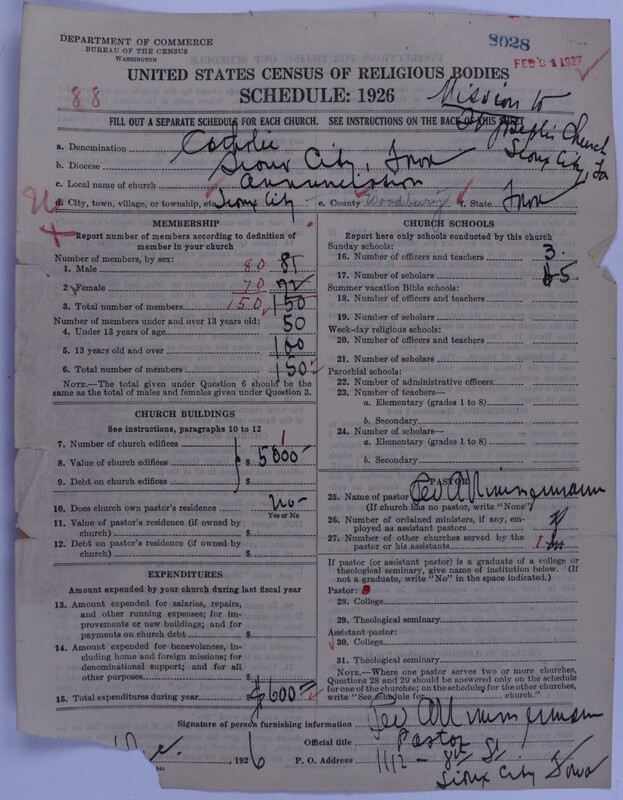 DEPARTMENT OF COMMERCE
BUREAU OF THE CENSUS
WASHINGTON
8028
FEB 21 1927
UNITED STATES CENSUS OF RELIGIOUS BODIES
SCHEDULE: 1926
88
Mission to
FILL OUT A SEPARATE SCHEDULE FOR EACH CHURCH. SEE INSTRUCTIONS ON THE BACK OF THIS SHEET
Church
Sioux City, Ia
a. Denomination Catholic
b. Diocese Sioux City, Iowa
c. Local name of church Annunciation
d. City, town, village, or township, etc. Sioux City e. County Woodbury f. State Iowa
MEMBERSHIP
Report number of members according to definition of member in your church
Number of members, by sex:
1. Male 80 85
2. Female 70 72
3. Total number of members 150 150
Number of members under and over 13 years old:
4. Under 13 years of age 50
5. 13 years old and over 100
6. Total number of members 150
NOTE.—The total given under Question 6 should be the same as the total of males and females given under Question 3.
CHURCH BUILDINGS
See instructions, paragraphs 10 to 12
7. Number of church edifices 1
8. Value of church edifices $ 5000
9. Debt on church edifices $
10. Does church own pastor's residence? no
Yes or No
11. Value of pastor's residence (if owned by church) $
12. Debt on pastor's residence (if owned by church) $
EXPENDITURES
Amount expended by your church during last fiscal year
13. Amount expended for salaries, repairs, and other running expenses; for improvements or new buildings; and for payments on church debt $
14. Amount expended for benevolences, including home and foreign missions; for denominational support; and for all other purposes $
15. Total expenditures during year $ 600
CHURCH SCHOOLS
Report here only schools conducted by this church
Sunday schools:
16. Number of officers and teachers 3
17. Number of scholars
Summer vacation Bible schools:
18. Number of officers and teachers
19. Number of scholars
Week-day religious schools:
20. Number of officers and teachers
21. Number of scholars
Parochial schools:
22. Number of administrative officers
23. Number of teachers—
a. Elementary (grades 1 to 8)
b. Secondary
24. Number of scholars—
a. Elementary (grades 1 to 8)
b. Secondary
PASTOR
25. Name of pastor
(If church has no pastor, write "None")
26. Number of ordained ministers, if any, employed as assistant pastors
27. Number of other churches served by the pastor or his assistants 1
If pastor (or assistant pastor) is a graduate of a college or theological seminary, give name of institution below. (If not a graduate, write "No" in the space indicated.)
Pastor:
28. College
29. Theological seminary
Assistant pastor:
30. College
31. Theological seminary
NOTE.—Where one pastor serves two or more churches, Questions 28 and 29 should be answered only on the schedule for one of the churches; on the schedules for the other churches, write "See schedule for church."
Signature of person furnishing information
Official title Pastor
, 1926 P. O. Address 1112 - 8th St
Sioux City Iowa